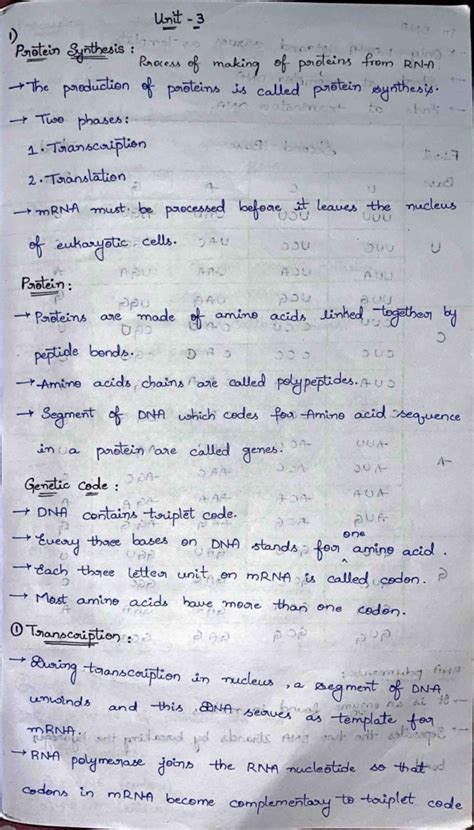 Unit - 3
1)
Protein Synthesis :
Process of making of proteins from RNA
→ The production of proteins is called protein synthesis.
→ Two phases:
1. Transcription
2. Translation
→ mRNA must be processed before it leaves the nucleus
of eukaryotic cells.
Protein :
→ Proteins are made of amino acids linked together by
peptide bonds.
→ Amino acids chains are called polypeptides.
→ Segment of DNA which codes for Amino acid sequence
in a protein are called genes.
Genetic code :
→ DNA contains triplet code.
→ Every three bases on DNA stands for one amino acid.
→ Each three letter unit on mRNA is called codon.
→ Most amino acids have more than one codon.
① Transcription :
→ During transcription in nucleus, a segment of DNA
unwinds and this DNA serves as template for
mRNA.
→ RNA polymerase joins the RNA nucleotide so that
codons in mRNA become complementary to triplet code